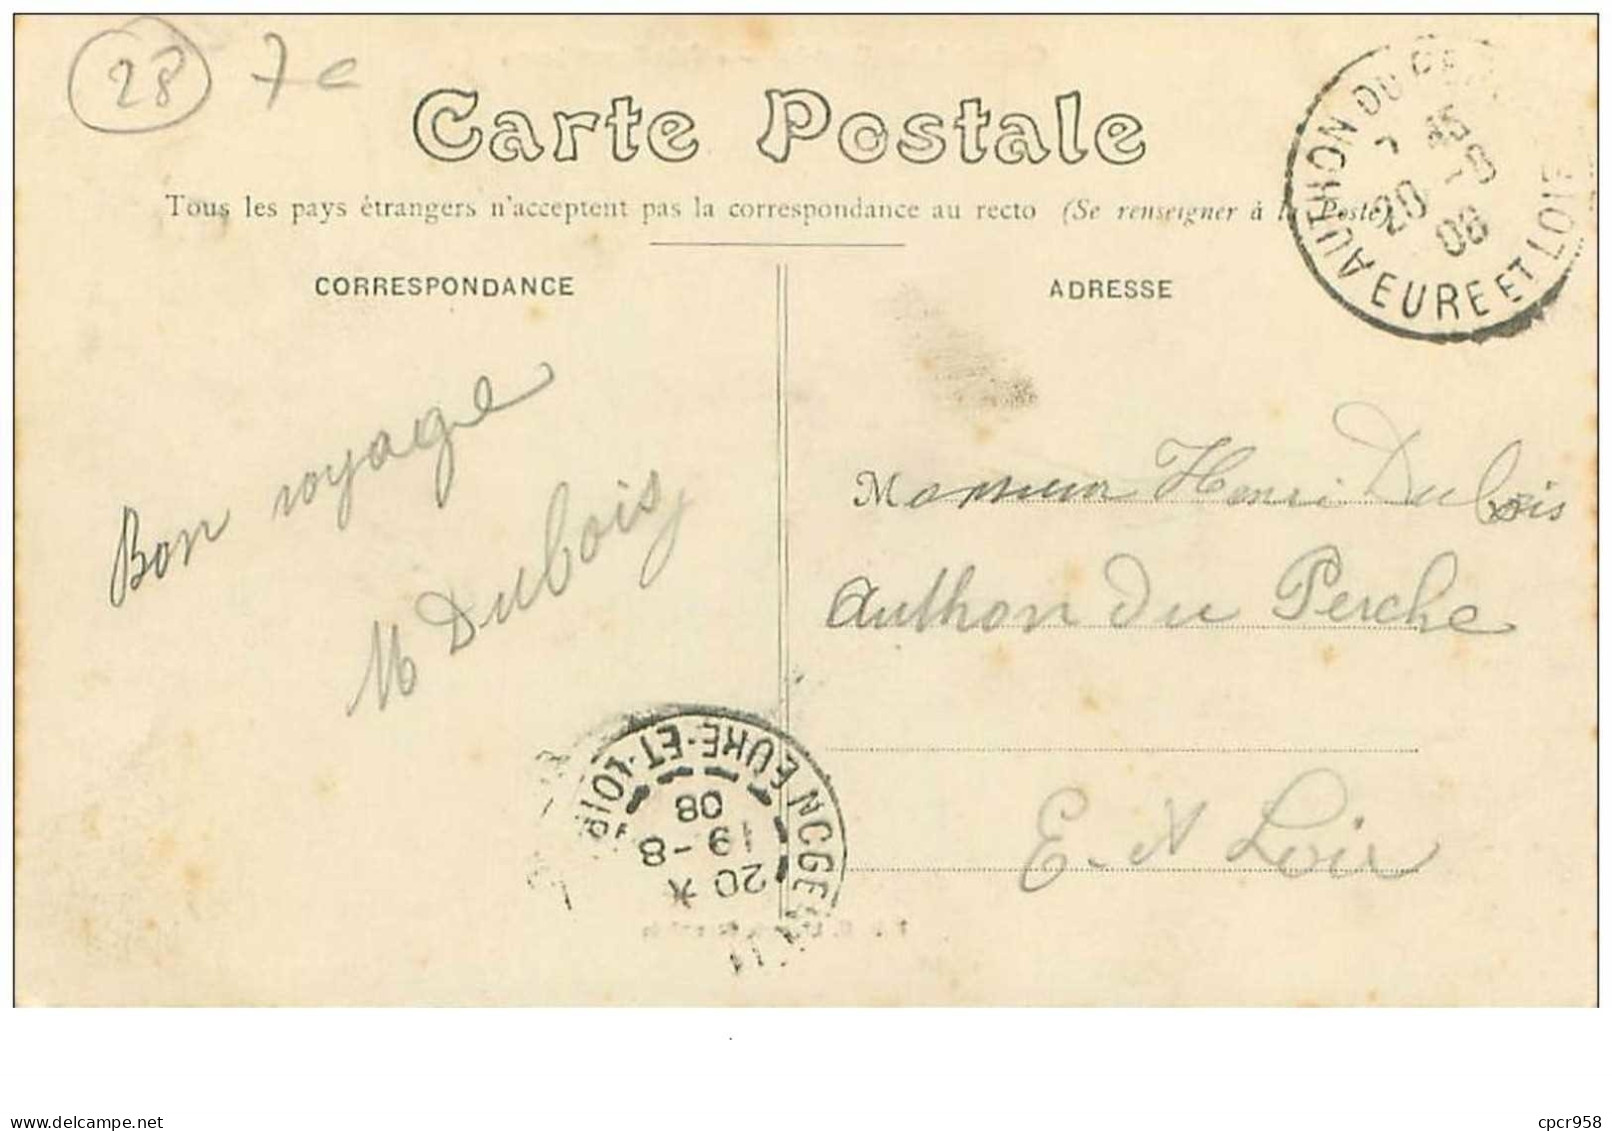 28 7e
Carte Postale
Tous les pays étrangers n'acceptent pas la correspondance au recto (Se renseigner à la Poste)
AUTHON DU PERCHE EURE ET LOIR
7 45
20 -8
08
CORRESPONDANCE
ADRESSE
Bon voyage
M Dubois
Monsieur Henri Dubois
Authon du Perche
E. et Loir
EURE-ET-LOIR
20 *
19 -8
08
www.delcampe.net
cpcr958